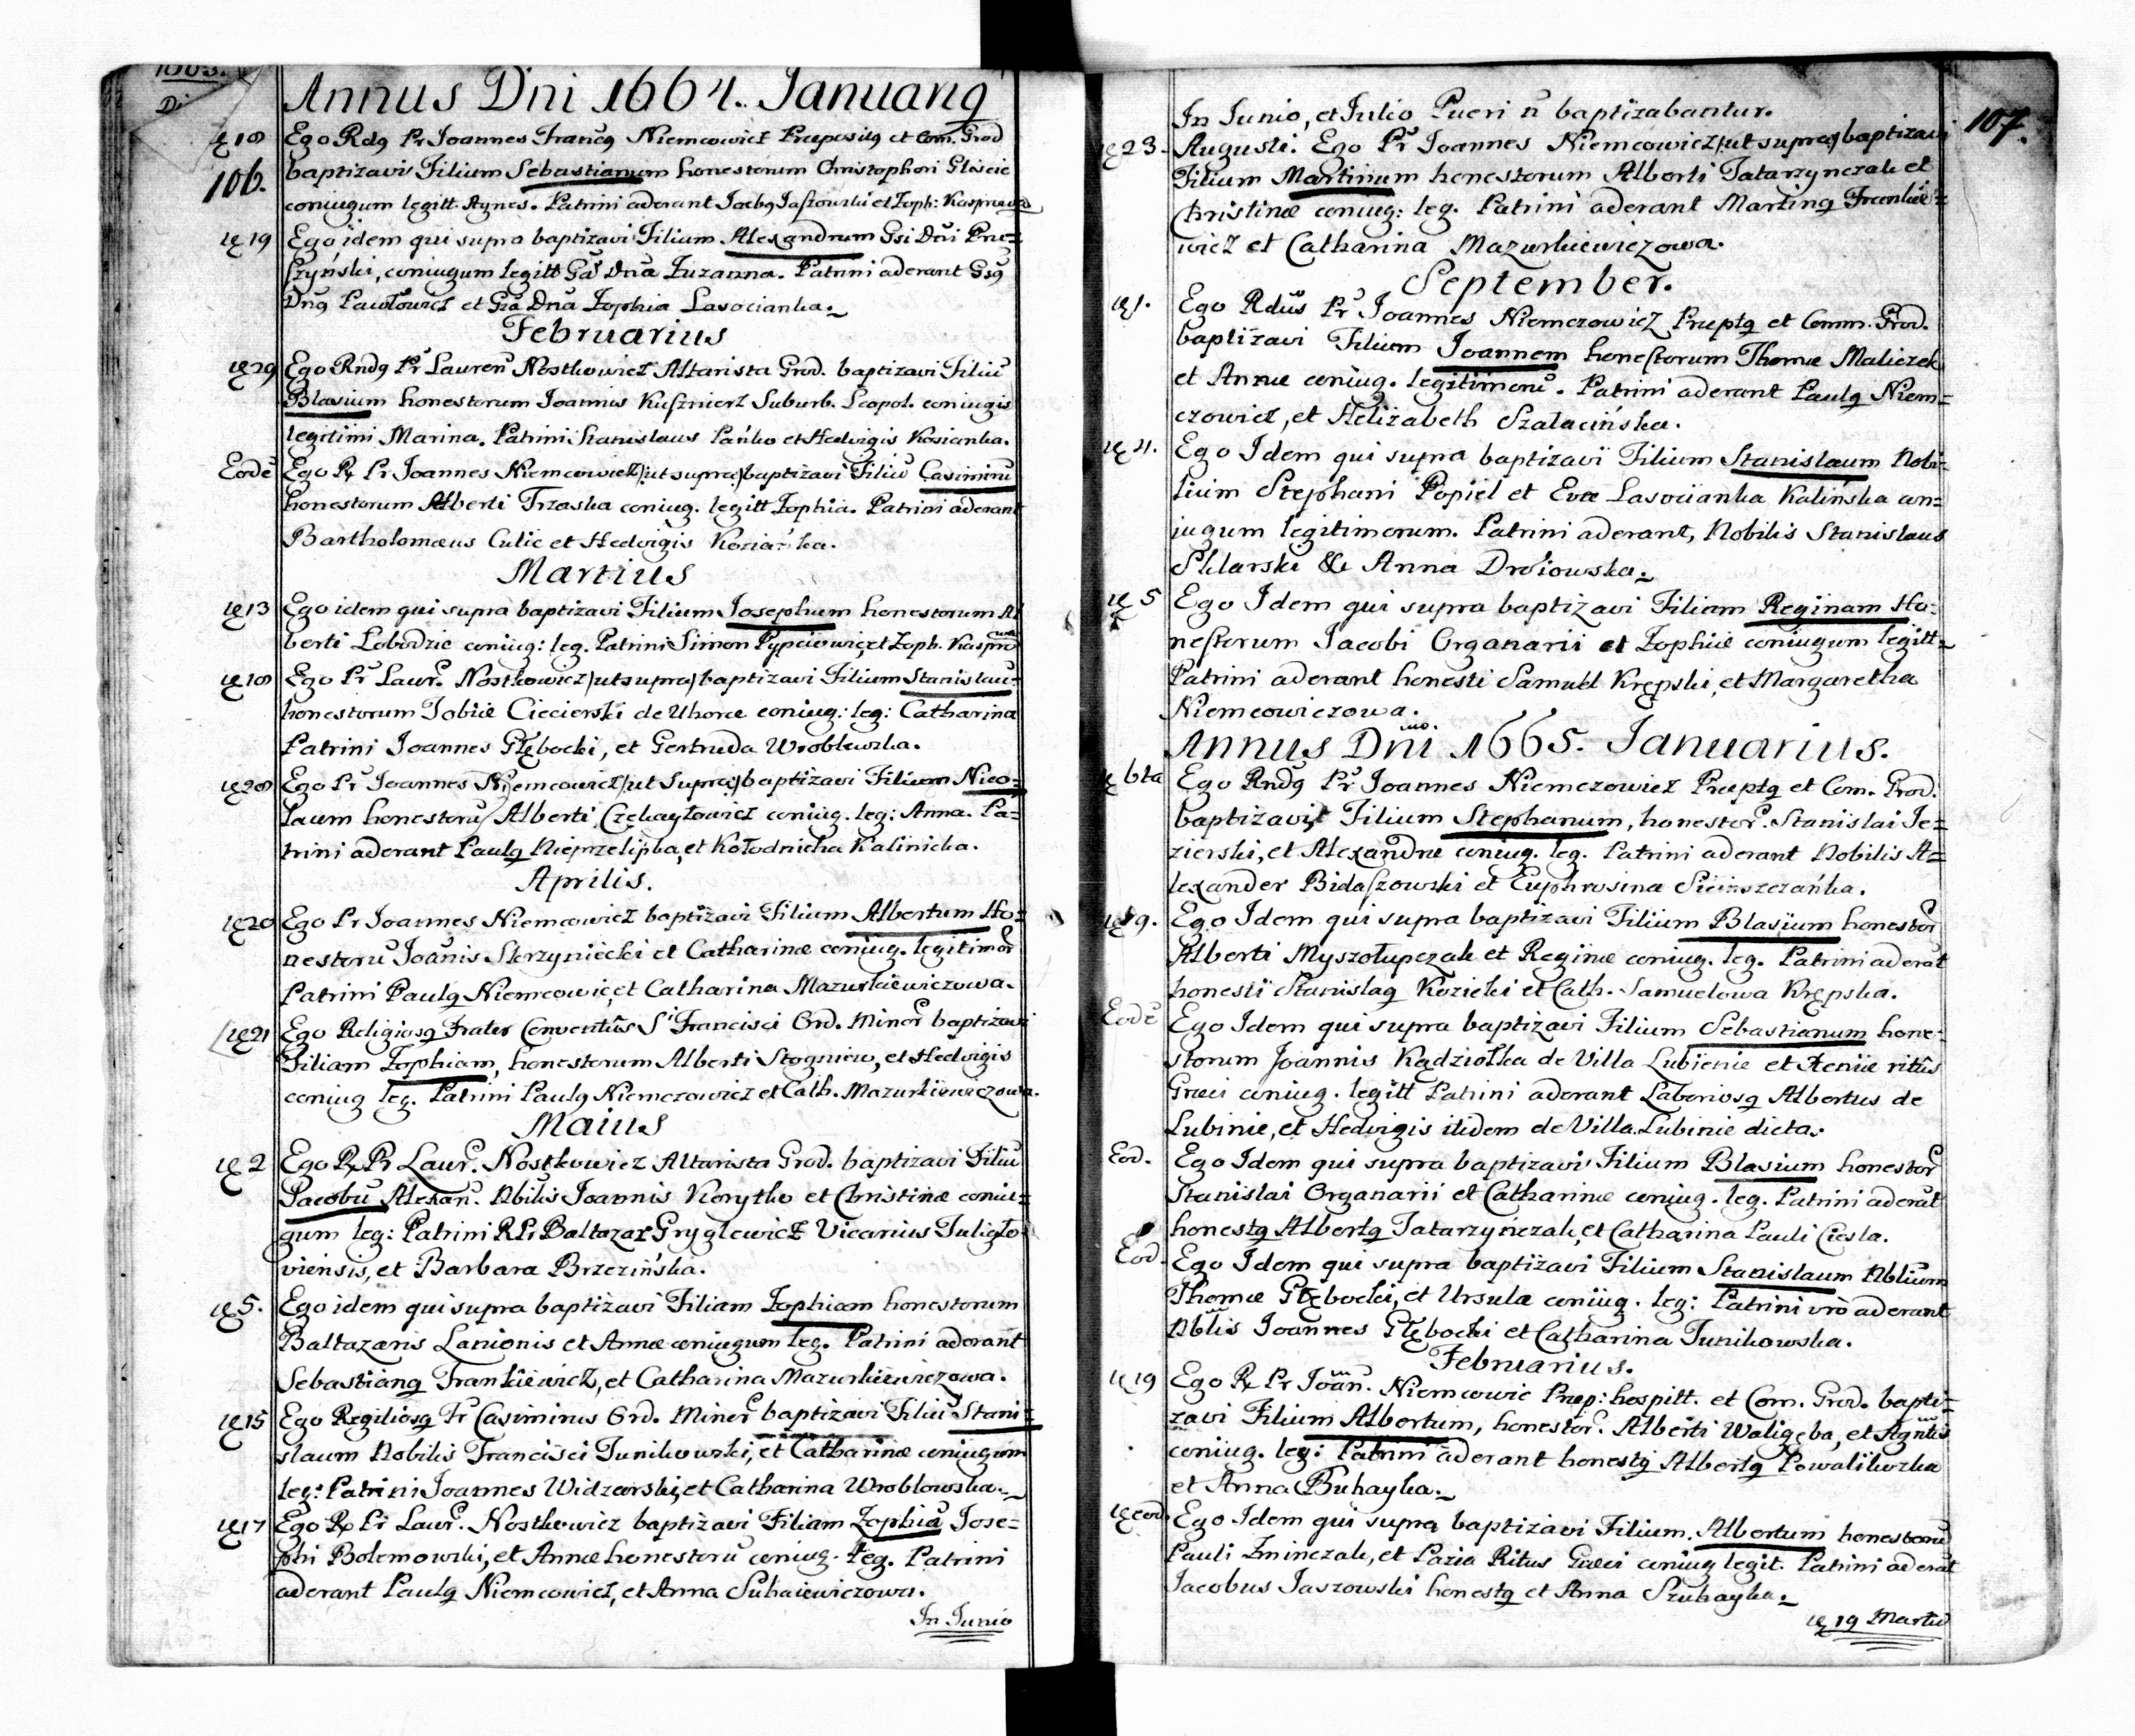 1663.
Di
Annus Dni 1664. Januarig
18 Ego Rdg Pr Joannes Francg Niemcowicz Prepositg et Com. Grod
106.
baptizavi Filium Sebastianum honestorum Christophori Gliscic
coniugum legitt. Agnes. Patrini aderant Jacbg Jaszowski et Zoph: Kasprowa
19 Ego idem qui supra baptizavi Filium Alexandrum Gsi Dni Prue=
szyński, coniugum legitt Ga Dna Zuzanna. Patrini aderant Gsg
Dng Pawłowicz et Gra Dna Zophia Lasocianka.
Februarius
29 Ego Rndg Pr Lauren Nostkowicz Altarista Grod. baptizavi Filiu
Blasium honestorum Joannis Kusznierz Suburb. Leopol. coniugis
legitimi Marina. Patrini Stanislaus Pańko et Hedvigis Kosianka.
Eode Ego R. Pr Joannes Niemcowicz /:ut supra:/ baptizavi Filiu Casimiru
honestorum Alberti Trzaska coniug. legitt Zophia. Patrini aderant
Bartholomæus Culic et Hedvigis Koziańka.
Martius
13 Ego idem qui supra baptizavi Filium Josephum honestorum Al
berti Lobodzic coniug: leg. Patrini Simon Pypciowic, et Zoph. Kaspro
18 Ego Pr Laur. Nostkowicz /ut supra/ baptizavi Filium Stanislau=
honestorum Tobiæ Ciecierski de Uhorce coniug: leg: Catharina
Patrini Joannes Głębocki, et Gertruda Wroblewska.
28 Ego Pr Joannes Niemcowicz /:ut supra:/ baptizavi Filium Nico=
laum honestoru Alberti Czekayłowicz coniug. leg: Anna. Pa=
trini aderant Paulg Nieprzelipka, et Kołodnicka Kalinicka.
Aprilis.
20 Ego Pr Joannes Niemcowicz baptizavi Filium Albertum Ho=
nestoru Joanis Skrzyniecki et Catharinæ coniug. legitimor
Patrini Paulg Niemcowic, et Catharina Mazurkiewiczowa.
21 Ego Religiosg Frater Conventûs S Francisci Ord. Minor baptizavi
Filiam Zophiam, honestorum Alberti Stogniew, et Hedvigis
coniug leg. Patrini Paulg Niemczowicz et Cath. Mazurkiewiczowa.
Maius
2 Ego R. Pr Laur. Nostkowicz Altarista Grod. baptizavi Filiu
Jacobu Alexan. Nbilis Joannis Korytko et Christinæ coniu=
gum leg: Patrini R Pr Baltazar Gryglewicz Vicarius Tuligło=
viensis, et Barbara Brzezińska.
5. Ego idem qui supra baptizavi Filiam Zophiam honestorum
Baltazaris Lanionis et Annæ coniugum leg. Patrini aderant
Sebastiang Frankiewicz, et Catharina Mazurkiewiczowa.
15 Ego Regiliosg Fr Casimirus Ord. Minor baptizavi Filiu Stani=
slaum Nobilis Francisci Tunikowski, et Catharinæ coniugum
leg: Patrini Joannes Widzarski, et Catharina Wroblowska.
17 Ego R. Pr Laur. Nostkowicz baptizavi Filiam Zophia Jose=
phi Bolemowski, et Annæ honestoru coniug. leg. Patrini
aderant Paulg Niemcowicz, et Anna Suhaiewiczowa.
In Junio
107.
In Junio, et Julio Pueri n baptizabantur.
23. Augusti. Ego Pr Joannes Niemcowicz /:ut supra:/ baptizavi
Filium Martinum honestorum Alberti Tatarzynczak et
Christinæ coniug: leg. Patrini aderant Marting Frankie=
wicz et Catharina Mazurkiewiczowa.
September.
1. Ego Rdus Pr Joannes Niemczowicz Preptg et Comm. Grod.
baptizavi Filium Joannem honestorum Thomæ Maliczek
et Annæ coniug. legitimoru. Patrini aderant Paulg Niem=
czowicz, et Helizabeth Szalacińska.
4. Ego Idem qui supra baptizavi Filium Stanislaum Nobi=
lium Stephani Popiel et Evæ Lasocianka Kalińska con=
jugum legitimorum. Patrini aderant, Nobilis Stanislaus
Sklarski & Anna Droiowska.
5 Ego Idem qui supra baptizavi Filiam Reginam Ho=
nestorum Jacobi Organarii et Zophiæ coniugum legitt=
Patrini aderant honesti Samuel Krępski, et Margaretha
Niemcowiczowa.
Annus Dni 1665. Januarius.
6ta Ego Rndg Pr Joannes Niemczowicz Præptg et Com. Grod.
baptizavit Filium Stephanum, honestor. Stanislai Je=
zierski, et Alexandræ coniug. leg. Patrini aderant Nobilis A=
lexander Bidaszowski et Euphrosina Siemszczańka.
19. Ego Idem qui supra baptizavi Filium Blasium honestor
Alberti Myszołupczak et Reginæ coniug. leg. Patrini aderat
honesti Stanislag Kozicki et Cath. Samuelowa Krępska.
Eode Ego Idem qui supra baptizavi Filium Sebastianum hone=
storum Joannis Kądziołka de Villa Lubienie et Xeniæ ritûs
Græci coniug. legitt Patrini aderant Laboriosg Albertus de
Lubinie, et Hedvigis itidem de Villa Lubinie dicta.
Eod. Ego Idem qui supra baptizavi Filium Blasium honestor
Stanislai Organarii et Catharinæ coniug. leg. Patrini aderat
honestg Albertg Tatarzyńczak, et Catharina Pauli Ciesla.
Eod. Ego Idem qui supra baptizavi Filium Stanislaum Nblium
Thomæ Głębocki, et Ursulæ coniug. leg: Patrini vrò aderant
Nblis Joannes Głębocki et Catharina Tunikowska.
Februarius.
19 Ego R. Pr Joan. Niemcowic Prep: hospitt. et Com. Grod. bapti=
zavi Filium Albertum, honestor. Alberti Waligęba, et Agnetis
coniug. leg: Patrini aderant honestg Albertg Powalikozka
et Anna Buhayka.
eod. Ego Idem qui supra baptizavi Filium Albertum honestoru
Pauli Zminczak, et Pazia Ritus Græci coniug legit. Patrini aderat
Jacobus Jaszowski honestg et Anna Szuhayka.
19 Martii